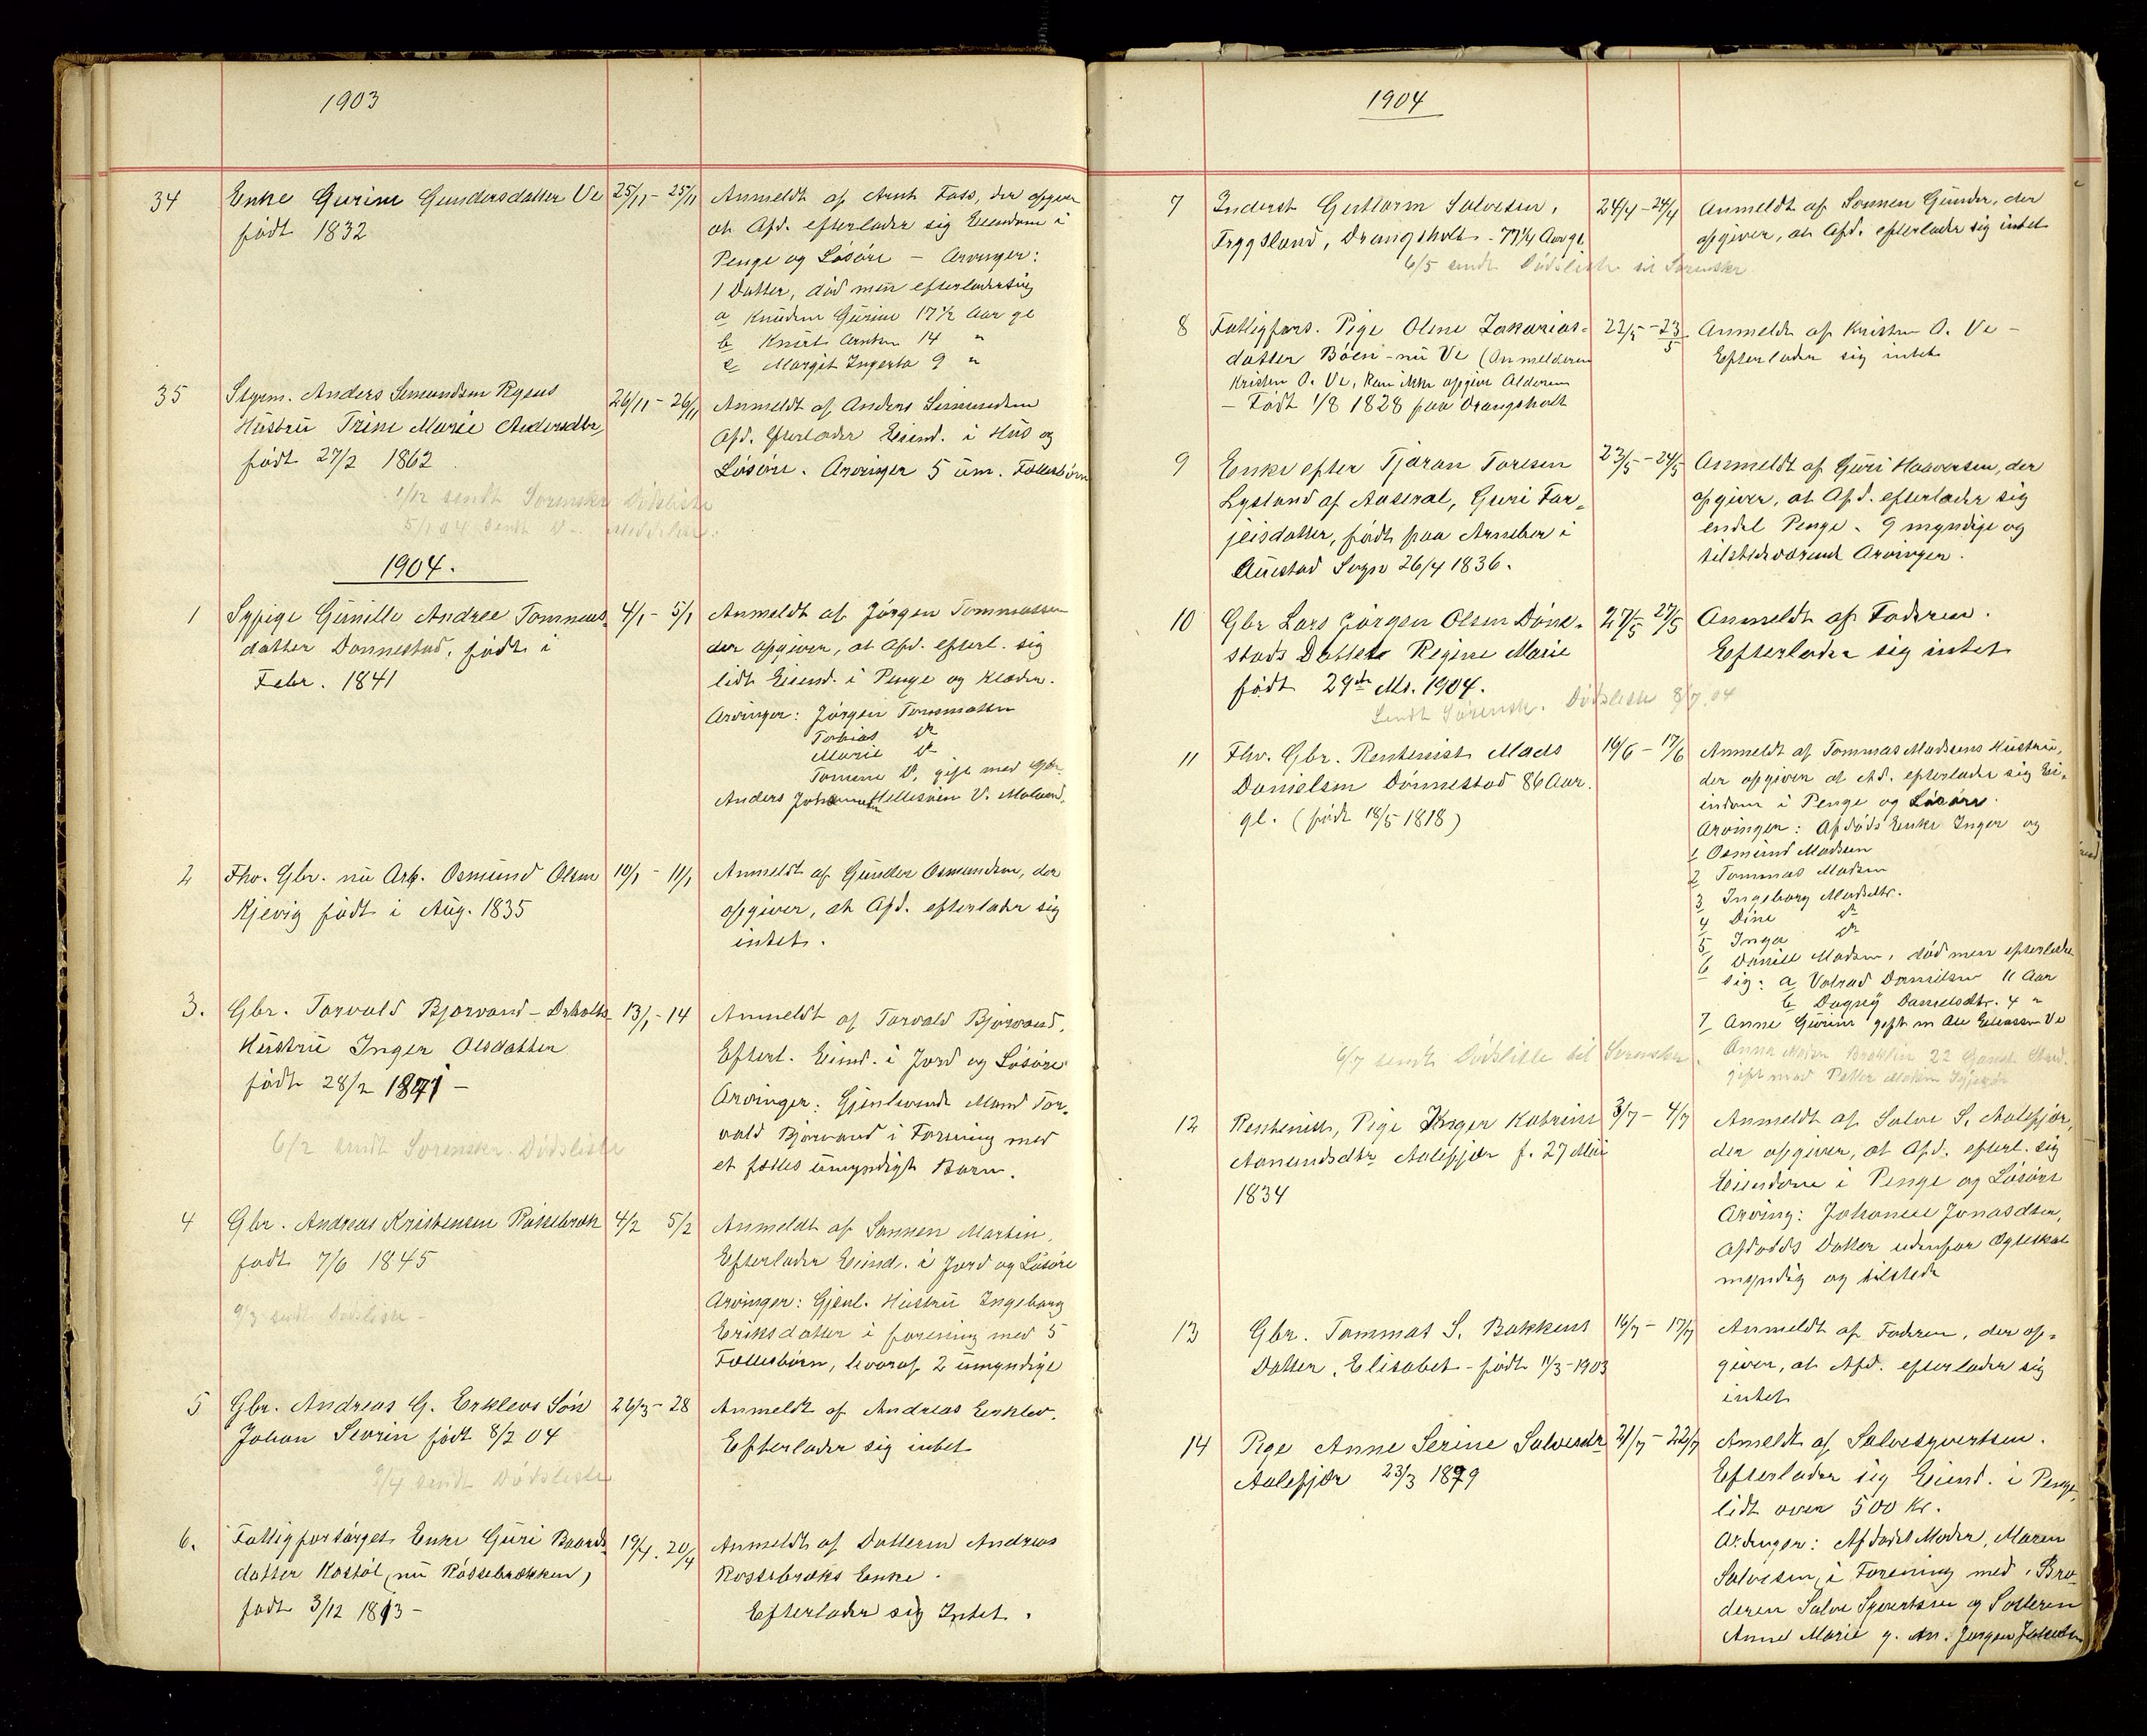 1903
34 Enke Gurine Gundersdatter Ve 25/11 - 25/11 Anmeldt af Arnt Foss, der opgiver
født 1832 at Afd. efterlader sig Eiendom i
Penge og Løsøre - Arvinger:
1 Datter, død men efterladersig
a Gurine 17 1/2 Aar gl
b Knut Arnten 14 "
c Margit Ingerta 9 "
35 Styrm. Anders Simundsen 26/11 - 26/11 Anmeldt af Anders Simundsen
Hustru Trine Marie Andersdtr, Afd. Efterlader Eiend. i Hus og
født 27/2 1862 Løsøre. Arvinger 5 um. Fællesbørn
1/12 sendt Sorenskr Dødsliste
5/1 04 sendt
1904.
1 Sypige Gunille Andrea Tommas- 4/1 - 5/1 Anmeldt af Jørgen Tommassen
datter Dønnestad, født i der opgiver, at Afd. efterl. sig
Febr. 1841 lidt Eiend. i Penge og Klæder.
Arvinger: Jørgen Tommassen
Tobias Do
Marie Do
Tomine D, gift med Gbr.
Anders Johannesen V. Moland.
2 Fhv. Gbr. nu Arb. Osmund Olsen 10/1 - 11/1 Anmeldt af Gunder Osmundsen, der
Kjevig født i Aug. 1835 opgiver, at Afd. efterlader sig
intet.
3. Gbr. Torvald Bjorvand - Drholts 13/1 - 14 Anmeldt af Torvald Bjorvand.
Hustru Inger Olsdatter Efterl. Eiend. i Jord og Løsøre
født 28/2 1871 - Arvinger: Gjenlevende Mand Tor-
vald Bjorvand i Forening med
et fælles umyndigt Barn.
6/2 sendt Sorenskr. Dødsliste
4 Gbr. Andreas Kristensen Røssebræk 4/2 5/2 Anmeldt af Sønnen Martin.
født 7/6 1845 Efterlader Eiend. i Jord og Løsøre
Arvinger: Gjenl. Hustru Ingeborg
9/3 sendt Dødsliste - Eriksdatter i forening med 5
Fællesbørn, hvoraf 2 umyndige
5 Gbr. Andreas G. Erklevs Søn 26/3 - 28 Anmeldt af Andreas Erklev.
Johan Severin født 8/2 04 Efterlader sig intet
9/4 sendt Dødsliste
6. Fattigforsørget Enke Guri Baards- 19/4. 20/4 Anmeldt af Datteren Andreas
datter Kostøl (nu Røssebrækken) Røssebræks Enke.
født 3/12 1813 - Efterlader sig Intet.
1904
7 Inderst Guttorm Salvesen, 24/4 - 24/4 Anmeldt af Sønnen Gunder, der
Tryggsland, Drangsholt - 77 1/4 Aar gl. opgiver, at Afd. efterlader sig intet
6/5 sendt Dødsliste til Sorenskr
8 Fattigfors. Pige Oline Zakarias- 22/5 - 23/5 Anmeldt af Kristen O. Ve -
datter Bøen - nu Ve (Anmelderen Efterlader sig intet
Kristen O. Ve, kan ikke opgive Alderen
- Født 1/8 1828 paa Drangsholt
9 Enke efter Tjøran Toresen 23/5 - 24/5 Anmeldt af Guri Haaversen, der
Lysland af Aaseral, Guri Tor- opgiver, at Afd. efterlader sig
jeisdatter, født paa i endel Penge. 9 myndige og
Sogn 26/4 1836. tilstedeværende Arvinger.
10 Gbr Lars Jørgen Olsen Døne- 27/5 27/5 Anmeldt af Faderen.
stads Datter Regine Marie Efterlader sig intet
født 29de Ms. 1904.
Sendt Sorensk. Dødsliste 8/7 04
11 Fhv. Gbr. Rentenist Mads 16/6 - 17/6 Anmeldt af Tommas Madsens Hustru,
Danielsen Dønnestad 86 Aar. der opgiver at Afd. efterlader sig Ei-
gl. (født 18/5 1818) endom i Penge og Løsøre.
Arvinger: Afdøds Enke Inger og
1 Osmund Madsen
2 Tommas Madsen
3 Ingeborg Madsdtr.
4 Dine Do
5 Inga Do
6 Daniel Madsen, død men efterlader
sig: a Valrad Danielsen 11 Aar
b Dagny Danielsdtr. 4 "
7 Anne Gurine gift m Ole Ve
6/7 sendt Dødsliste til Sorenskr. Anna 22
gift med Petter
12 Rentenist, Pige Inger Katrine 3/7 - 4/7 Anmeldt af Salve S. Aalefjær,
Aanundsdtr Aalefjær f. 27 Mai der opgiver, at Afd. efterl. sig
1834 Eiendom i Penge og Løsøre
Arving: Johanne Jonasdtr,
Afdødes Datter udenfor Ægteskab
myndig og tilstede
13 Gbr. Tommas S. Bakkens 16/7 - 17/7 Anmeldt af Faderen, der op-
Datter, Elisabet - født 11/3 - 1903 giver, at Afd. efterlader sig
intet
14 Pige Anne Serine Salvesdtr 21/7 - 22/7 Ameldt af Salvesyvertsen.
Aalefjær 23/3 1879 Efterlader sig Eiend. i Penge,
lidt over 500 Kr.
Arvinger: Afdødes Moder, Maren
Salvesen, i Forening med Bro-
deren Salve Syvertsen og Søsteren
Anne Marie g. m. Jørgen